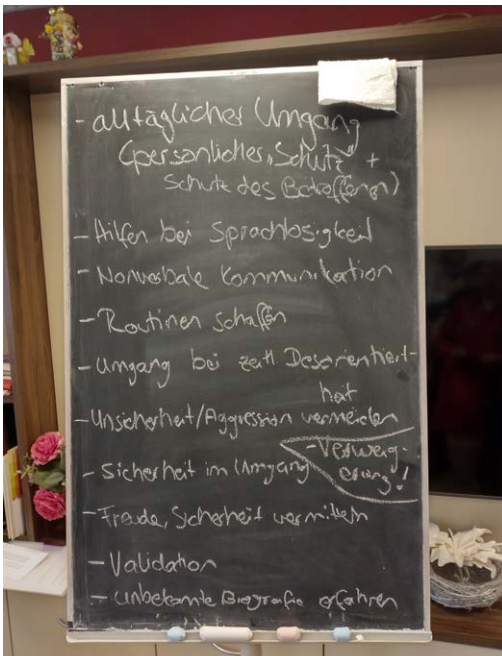 - alltäglicher Umgang
(persönlicher "Schutz" +
Schutz des Betroffenen)
- Hilfen bei Sprachlosigkeit
- Nonverbale Kommunikation
- Routinen schaffen
- Umgang bei zeitl Desorientiert-
heit
- Unsicherheit/Aggression vermeiden
- Verweig-
erung!
- Sicherheit im Umgang
- Freude, Sicherheit vermitteln
- Validation
- unbekannte Biografie erfahren